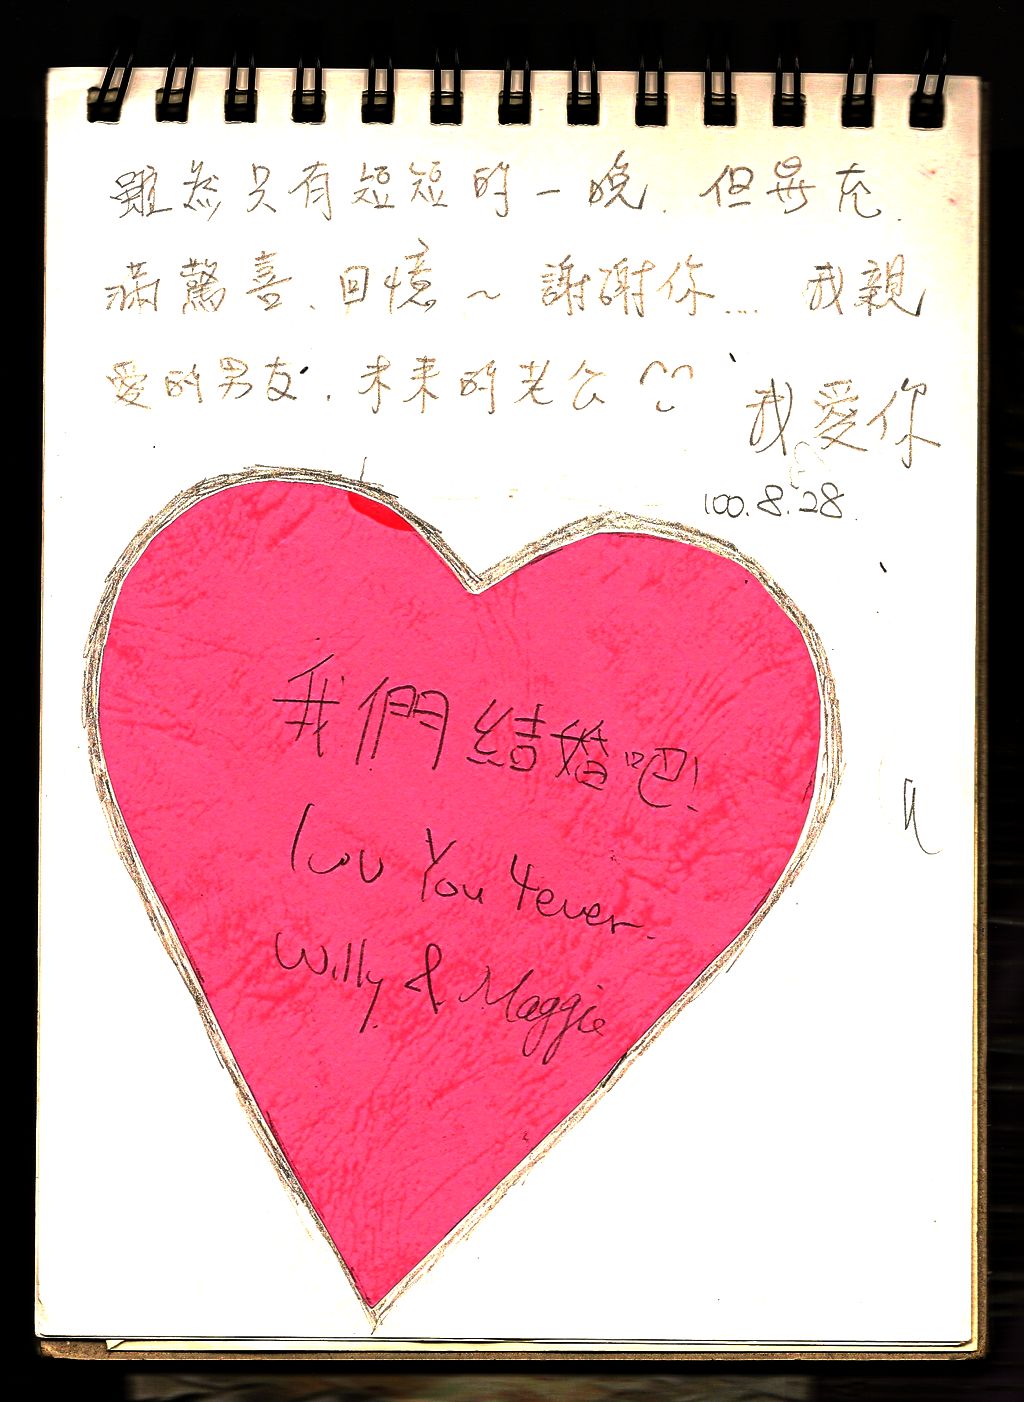 雖然只有短短的一晚.但是充
滿驚喜、回憶~謝謝你...我親
愛的男友.未來的老公
我愛你
100.8.28.
我們結婚吧!
luv You 4ever.
Willy & Maggie